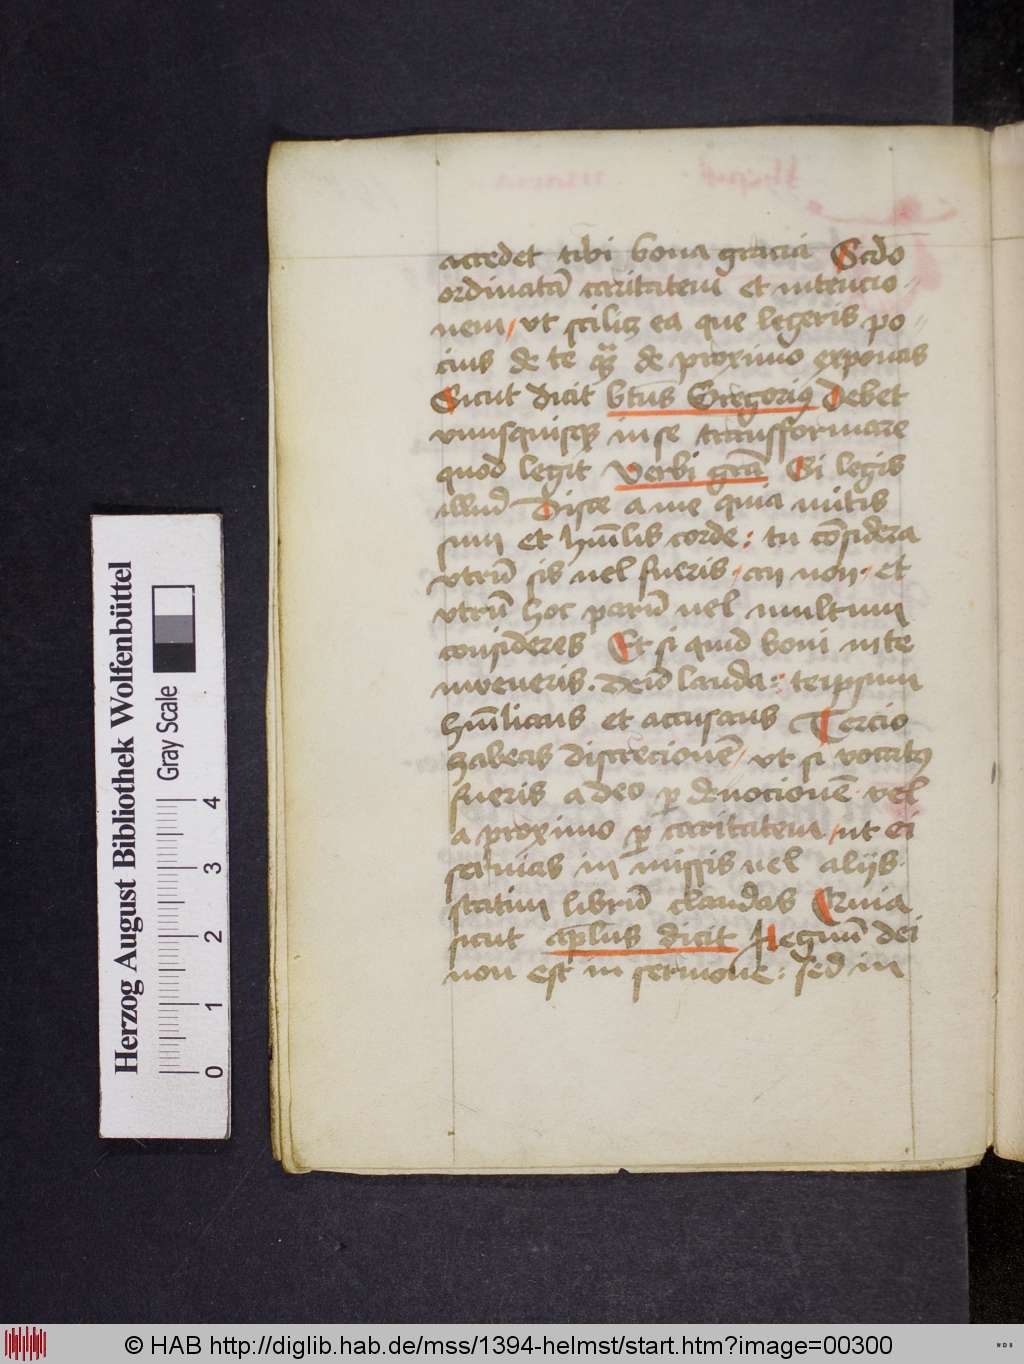 accedet tibi bona gracia Scdo
ordinatā caritatem et intencio
nem / ut scilicꝫ ea que legeris po
cius de te qͣꝫ de proximo exponas
Sicut dicit btūs Gregoriꝰ Debet
vnusquisqꝫ in se transformare
quod legit Verbi grā Si legis
illud Disce a me quia mitis
sum et hūilis corde : tu cōsidera
vtrū sis uel fueris / an non / et
vtrū hoc parū uel multum
consideres Et si quid boni in te
inveneris . deū lauda : teipsum
hūilians et accusans Tercio
habeas discrecionē / ut si vocatꝰ
fueris a deo ꝑ deuocionē vel
a proximo ꝑ caritatem / ut ei
seruias in missis uel alijs
statim librū claudas Quia
sicut apl̄us dicit Regnū dei
non est in sermone : sed in
Herzog August Bibliothek Wolfenbüttel
Gray Scale
0 1 2 3 4
© HAB http://diglib.hab.de/mss/1394-helmst/start.htm?image=00300